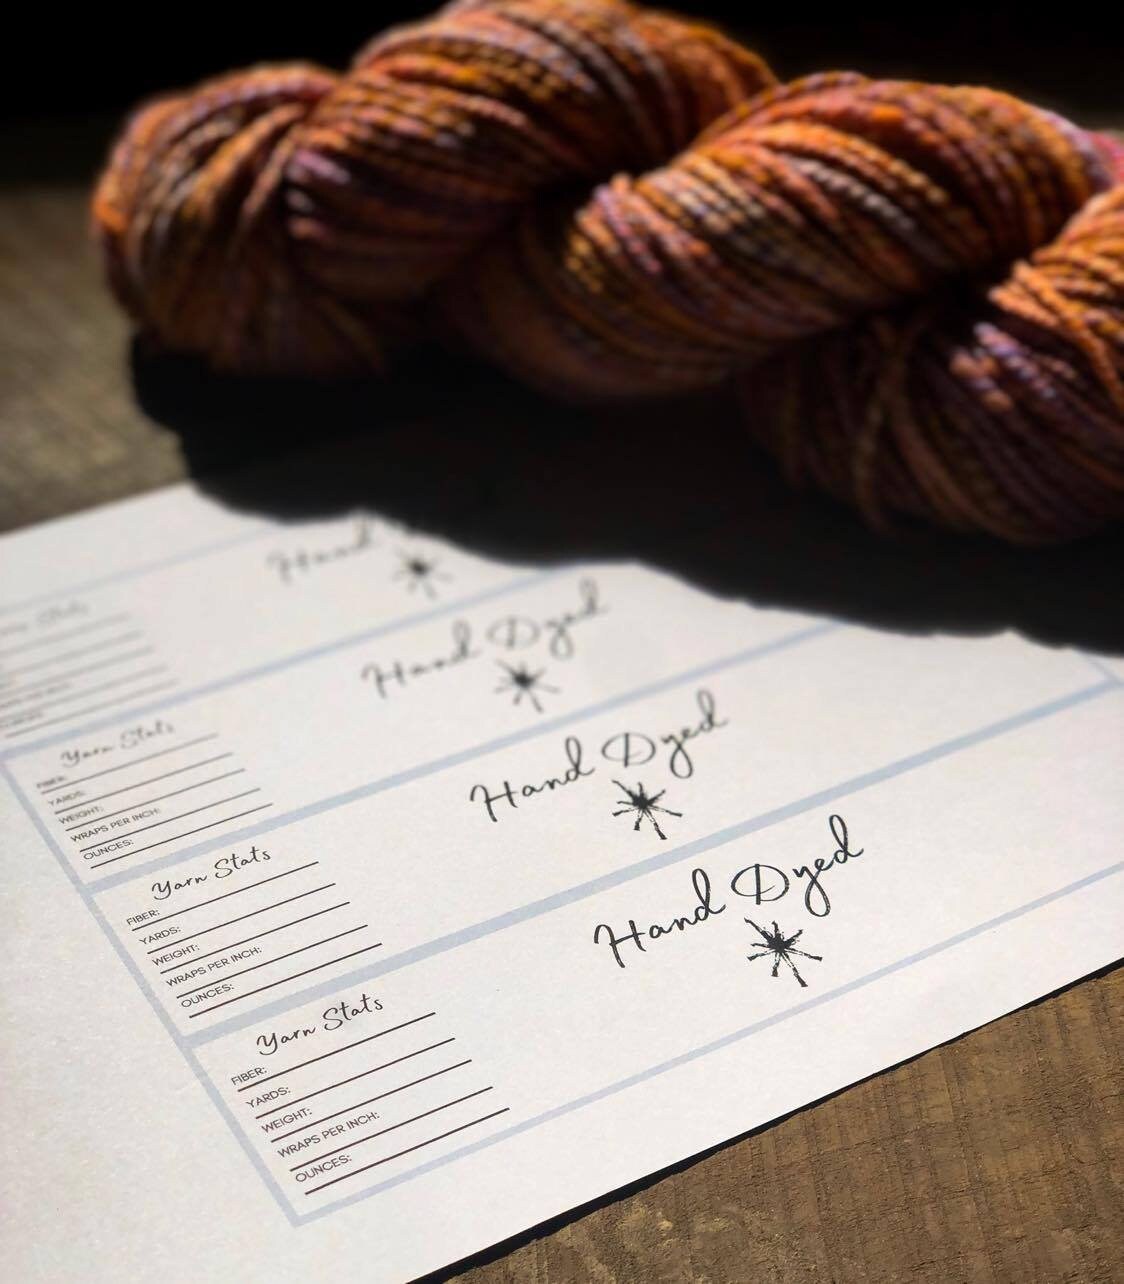 Hand
Hand Dyed
Yarn Stats
FIBER:
YARDS:
WEIGHT:
WRAPS PER INCH:
OUNCES:
Hand Dyed
Yarn Stats
FIBER:
YARDS:
WEIGHT:
WRAPS PER INCH:
OUNCES:
Hand Dyed
Yarn Stats
FIBER:
YARDS:
WEIGHT:
WRAPS PER INCH:
OUNCES: